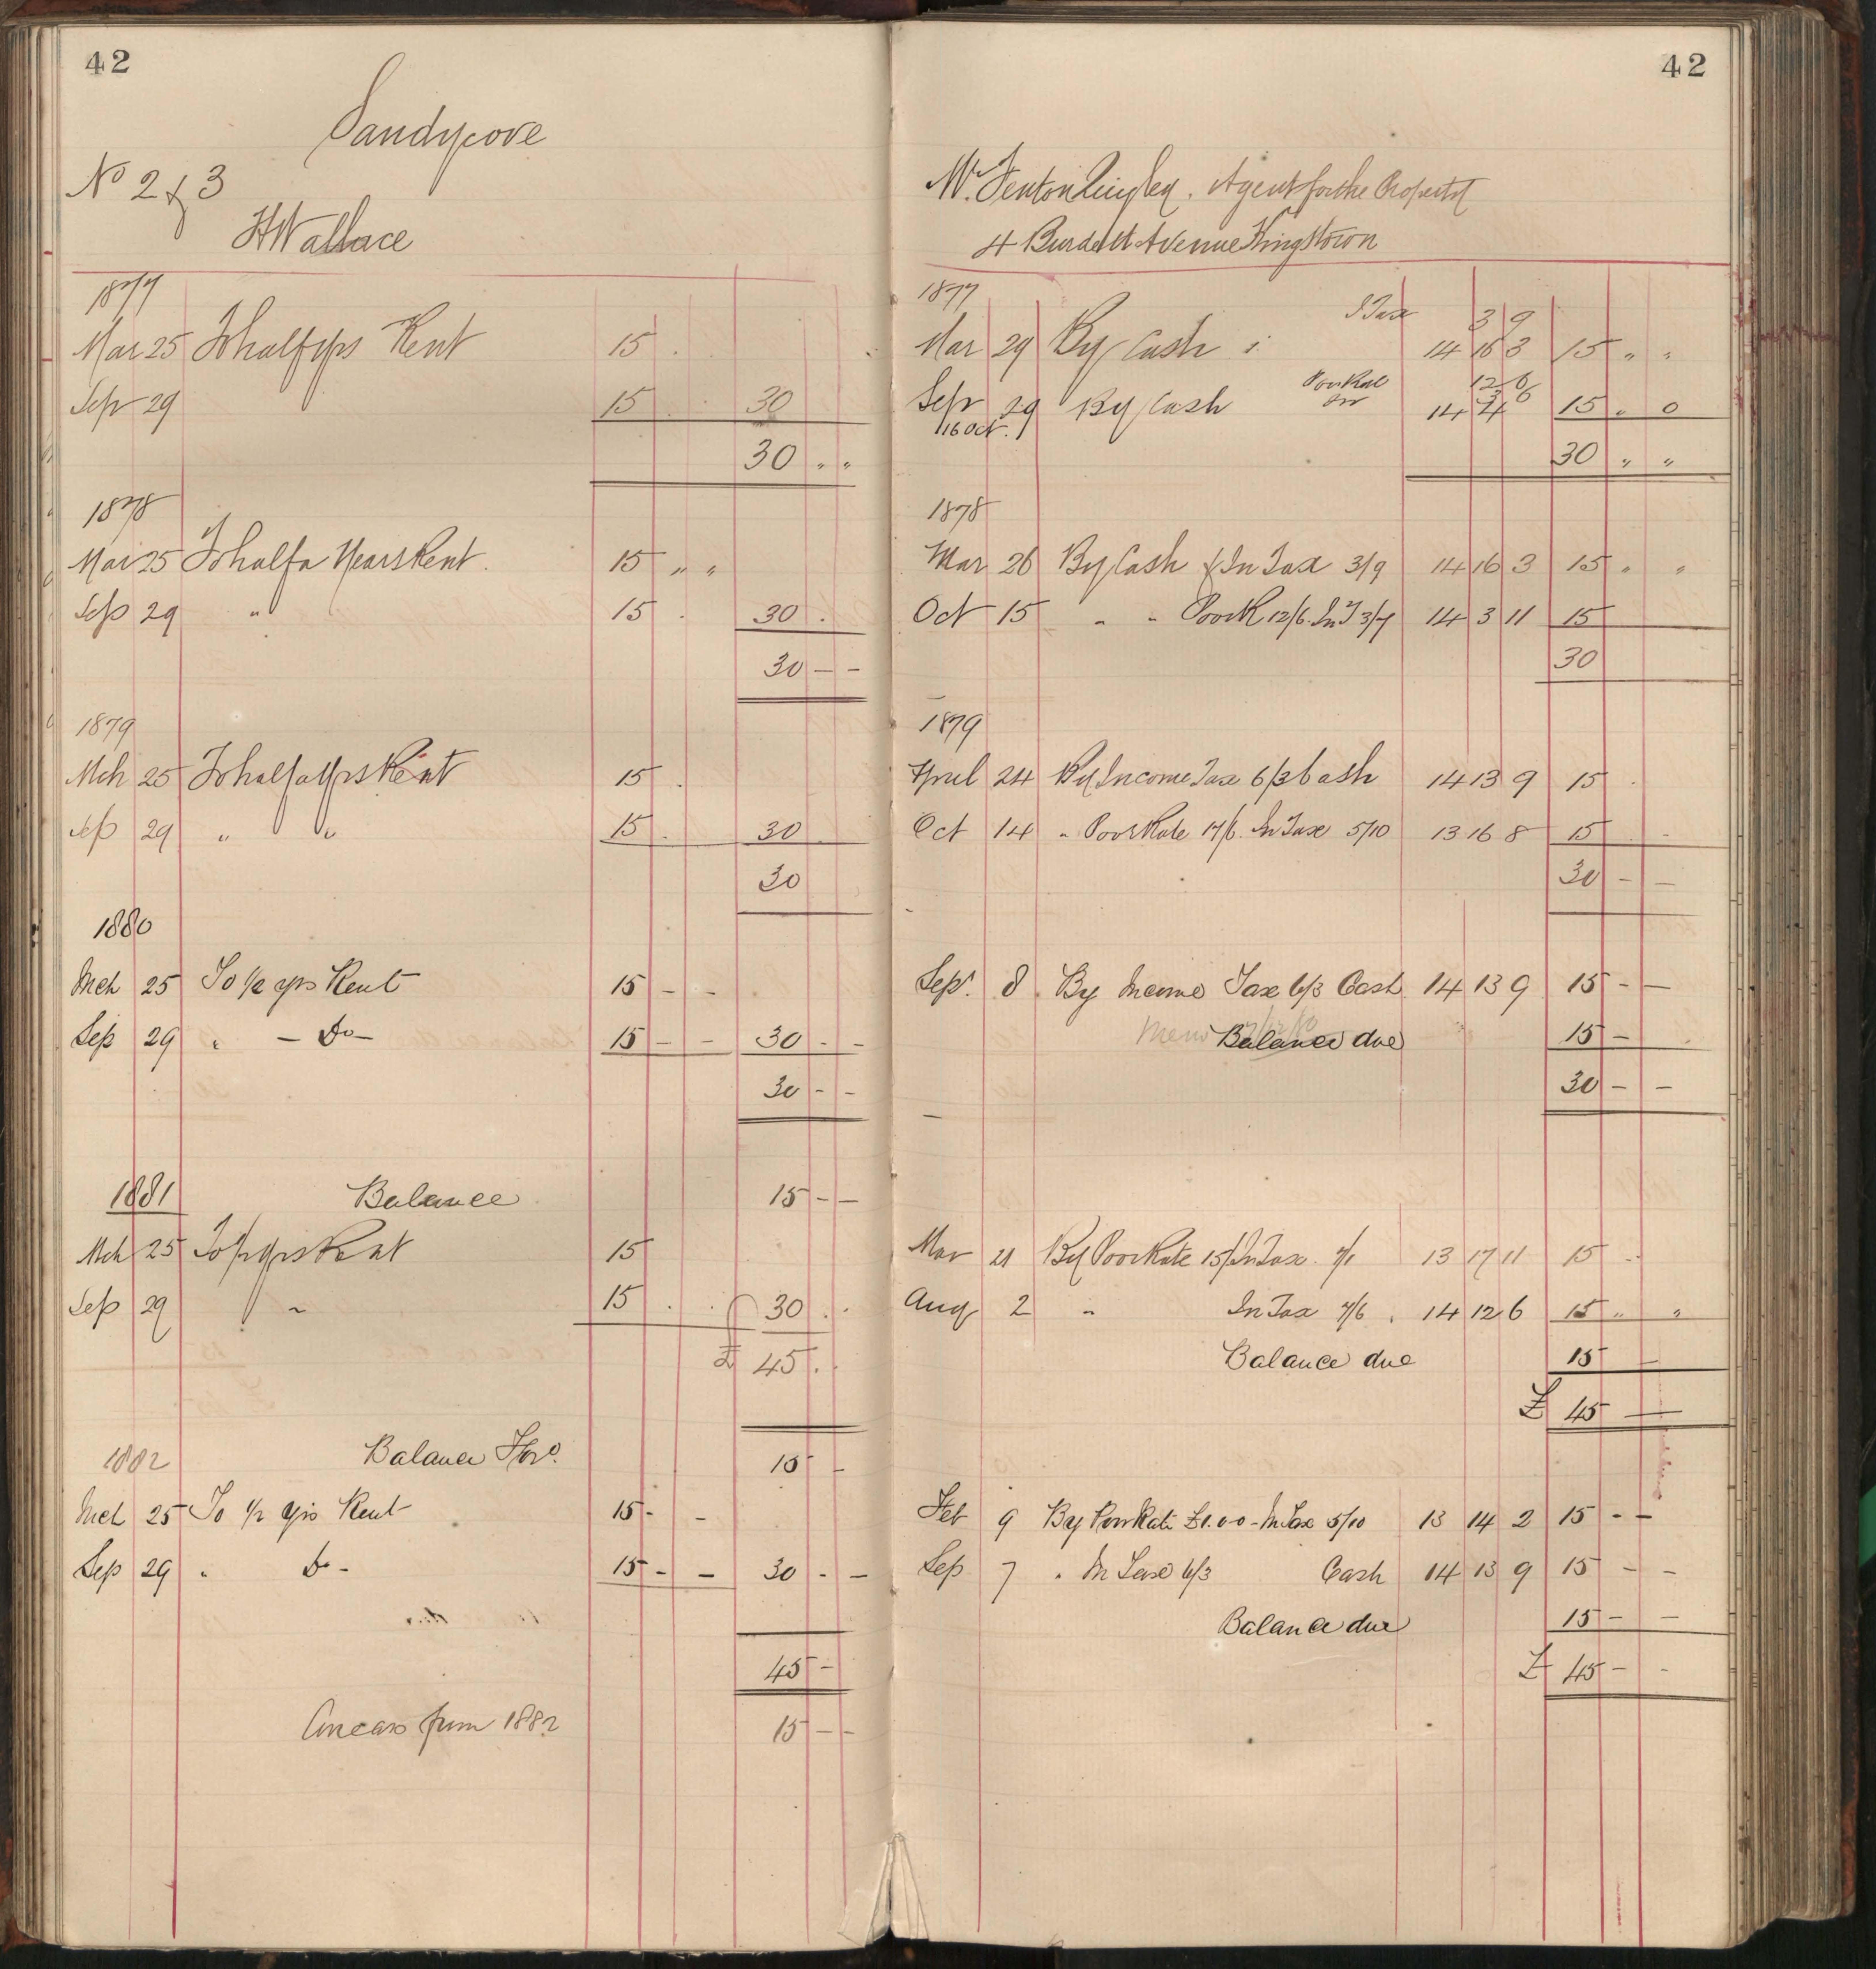 42
Sandycove
No 2 & 3
H Wallace
1877
Mar 25 To half yrs Rent 15
Sep 29 15 30
30 " "
1878
Mar 25 To half a Years Rent 15 " "
Sep 29 " 15 30
30 – –
1879
Mch 25 To half a Yrs Rent 15
Sep 29 " " 15 30
30
1880
Mch 25 To 1/2 yrs Rent 15 – –
Sep 29 " – Do – 15 – – 30 – –
30 – –
1881 Balance 15 – –
Mch 25 To 1/2 yrs Rent 15
Sep 29 " 15 30
£ 45
1882 Balance Ford. 15 –
Mch 25 To 1/2 yrs Rent 15 – –
Sep 29 " Do – 15 – – 30 – –
45 –
Arrears from 1882 15 – –
42
Mr. Fenton Agent for the Property
4 Burdett Avenue Kingstown
1877
I Tax 3 9
Mar 29 By Cash 14 16 3 15 " "
Poor Rate 12 6
Sep 29 By Cash 14 4 15 " 0
16 Oct.
30 " "
1878
Mar 26 By Cash & In Tax 3/9 14 16 3 15 " "
Oct 15 " " Poor R 12/6 In T 3/7 14 3 11 15
30
1879
April 24 By Income Tax 6/3 Cash 14 13 9 15
Oct 14 " Poor Rate 17/6 In Tax 5/10 13 16 8 15
30 – –
Sepr. 8 By Income Tax 6/3 Cash 14 13 9 15 – –
Memo Balance due 15 –
30 – –
Mar 21 By Poor Rate 15/ In Tax 7/1 13 17 11 15
Aug 2 " In Tax 7/6 14 12 6 15 " "
Balance due 15 –
£ 45 –
Feb 9 By Poor Rate £1.0.0 – In Tax 5/10 13 14 2 15 – –
Sep 7 " In Tax 6/3 Cash 14 13 9 15 – –
Balance due 15 – –
£ 45 – –